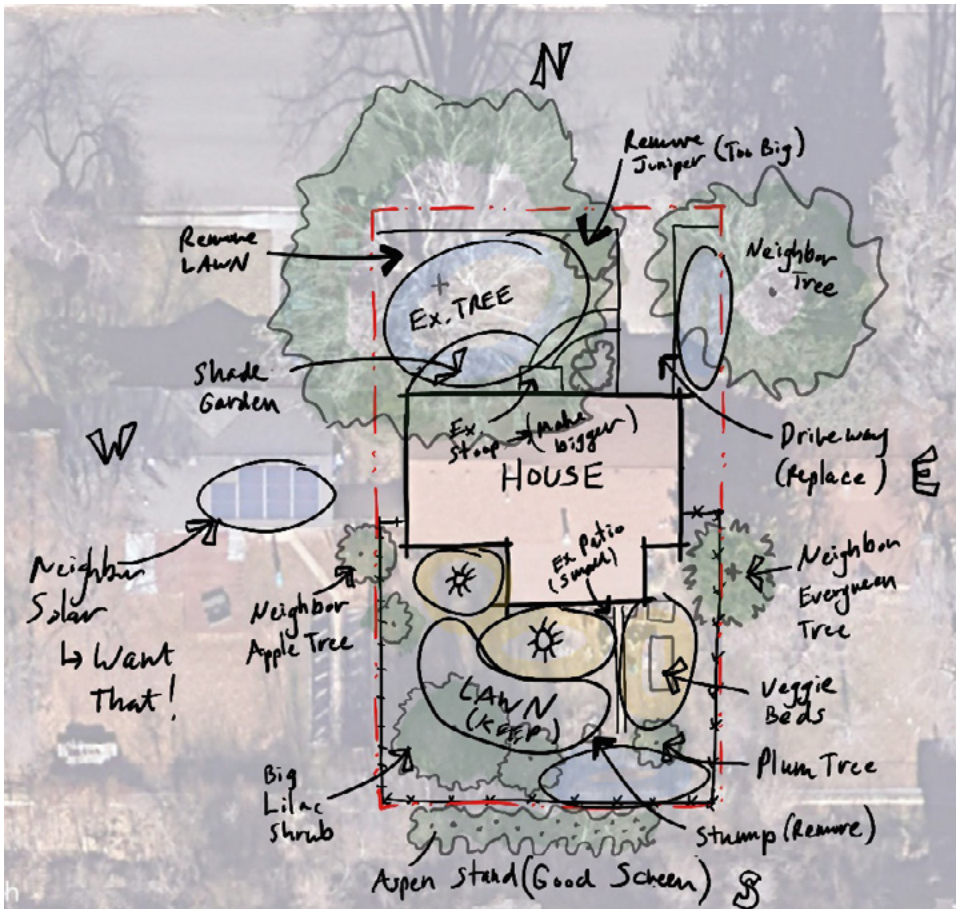 N
Remove
Juniper (Too Big)
Remove
LAWN
Neighbor
Tree
Ex. TREE
Shade
Garden
Ex
Stoop → (Make
bigger)
W
HOUSE
Driveway
(Replace)
E
Ex Patio
(small)
Neighbor
Solar
↳ Want
That!
Neighbor
Apple Tree
Neighbor
Evergreen
Tree
LAWN
(KEEP)
Veggie
Beds
Plum Tree
Big
Lilac
Shrub
Stump (Remove)
Aspen Stand (Good Screen)
S
h